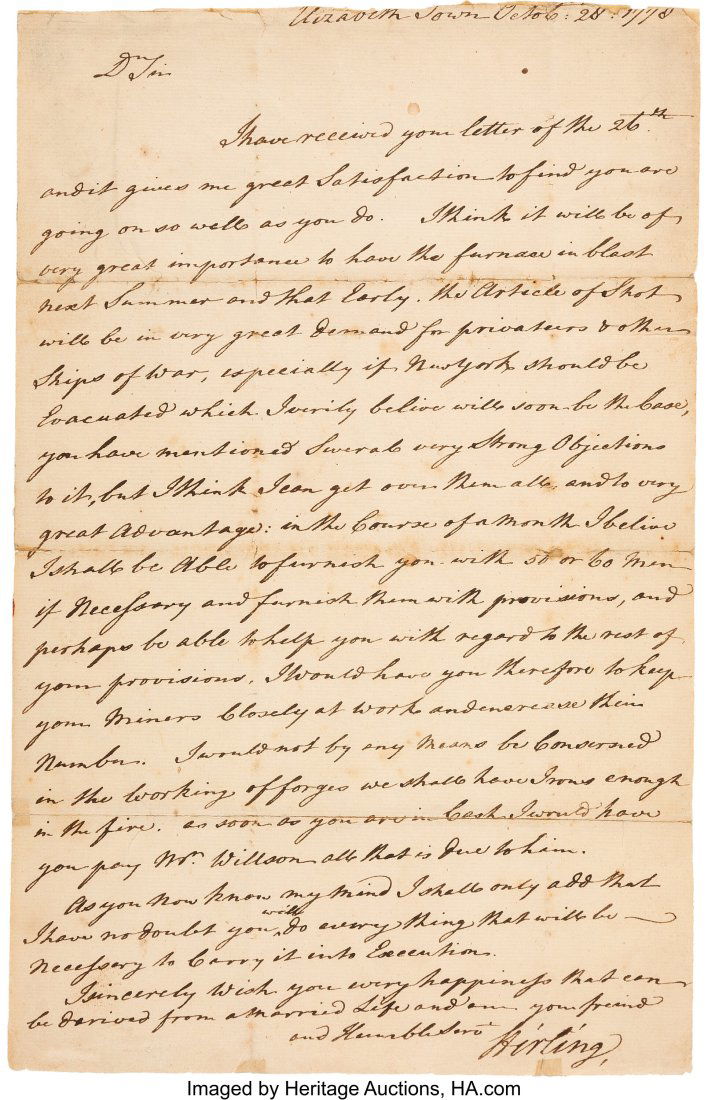 Elizabeth Town Octob: 28: 1778
Dr Sir
I have received your letter of the 26th.
and it gives me great Satisfaction to find you are
going on so well as you do. I think it will be of
very great importance to have the furnace in blast
next Summer and that Early. the Article of Shot
will be in very great demand for privateers & other
Ships of War, especially if New York should be
Evacuated which I verily belive will soon be the Case,
you have mentioned Several very Strong Objections
to it, but I think I can get over them all, and to very
great Advantage: in the Course of a month I belive
I shall be Able to furnish you with 50 or 60 men
if Necessary and furnish them with provisions, and
perhaps be able to help you with regard to the rest of
your provisions. I Would have you therefore to keep
your Miners Closely at work and encrease their
Number. I would not by any means be Conserned
in the Working of forges we shall have Irons enough
in the fire. as soon as you are in Cash I would have
you pay Mr. Willson all that is due to him.
As you Now know my mind I shall only add that
I have no doubt you will do every thing that will be —
Necessary to Carry it into Execution.
I sincerely Wish you every happiness that can
be derived from a Married Life and am your freind
and Humble Servt
Stirling,
Imaged by Heritage Auctions, HA.com